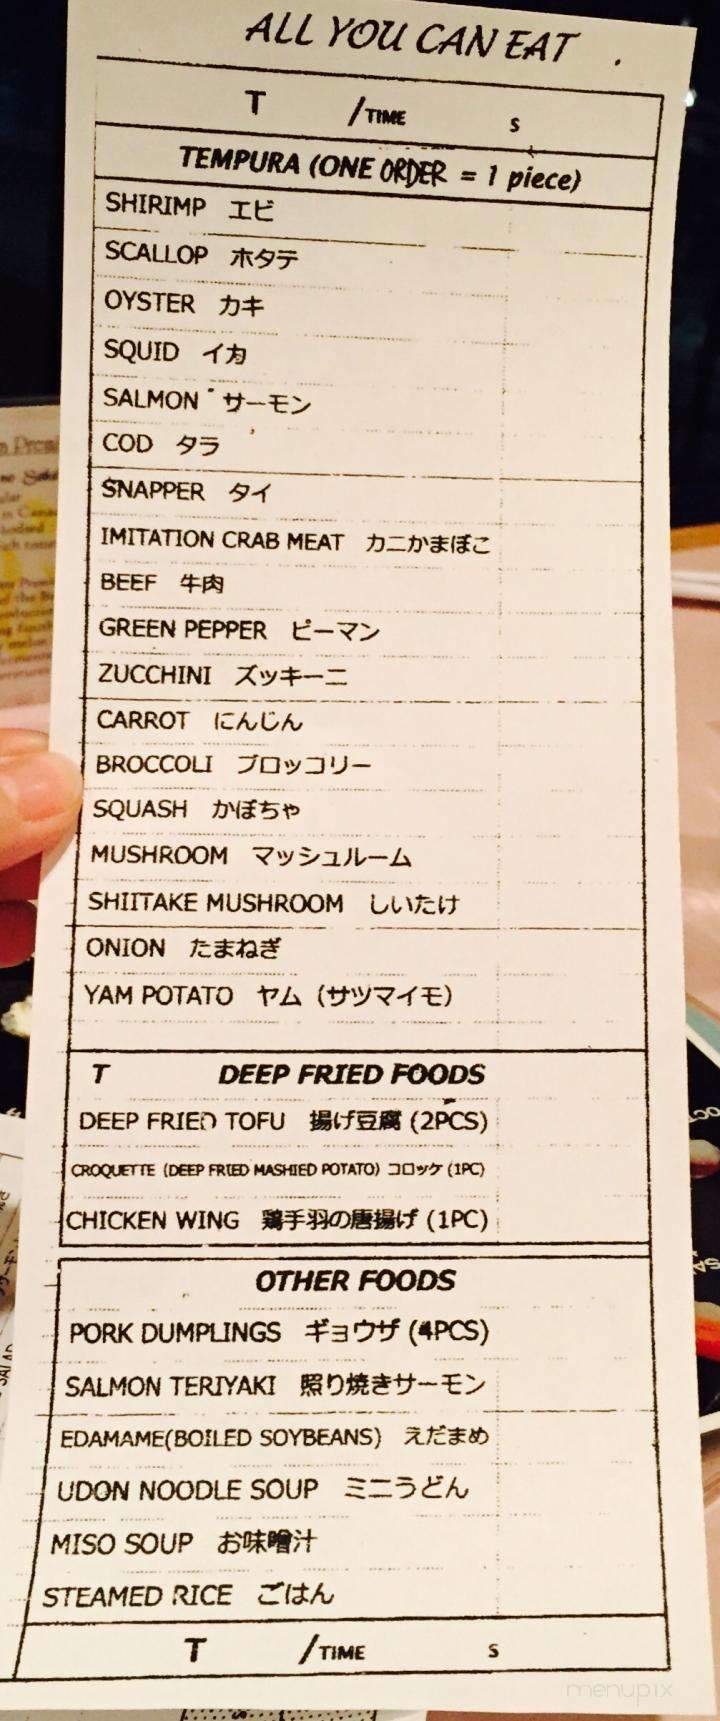 ALL YOU CAN EAT
T /TIME S
TEMPURA (ONE ORDER = 1 piece)
SHIRIMP エビ
SCALLOP ホタテ
OYSTER カキ
SQUID イカ
SALMON サーモン
COD タラ
SNAPPER タイ
IMITATION CRAB MEAT カニかまぼこ
BEEF 牛肉
GREEN PEPPER ピーマン
ZUCCHINI ズッキーニ
CARROT にんじん
BROCCOLI ブロッコリー
SQUASH かぼちゃ
MUSHROOM マッシュルーム
SHIITAKE MUSHROOM しいたけ
ONION たまねぎ
YAM POTATO ヤム（サツマイモ）
T DEEP FRIED FOODS
DEEP FRIED TOFU 揚げ豆腐 (2PCS)
CROQUETTE (DEEP FRIED MASHIED POTATO) コロッケ (1PC)
CHICKEN WING 鶏手羽の唐揚げ (1PC)
OTHER FOODS
PORK DUMPLINGS ギョウザ (4PCS)
SALMON TERIYAKI 照り焼きサーモン
EDAMAME(BOILED SOYBEANS) えだまめ
UDON NOODLE SOUP ミニうどん
MISO SOUP お味噌汁
STEAMED RICE ごはん
T /TIME S
menupix